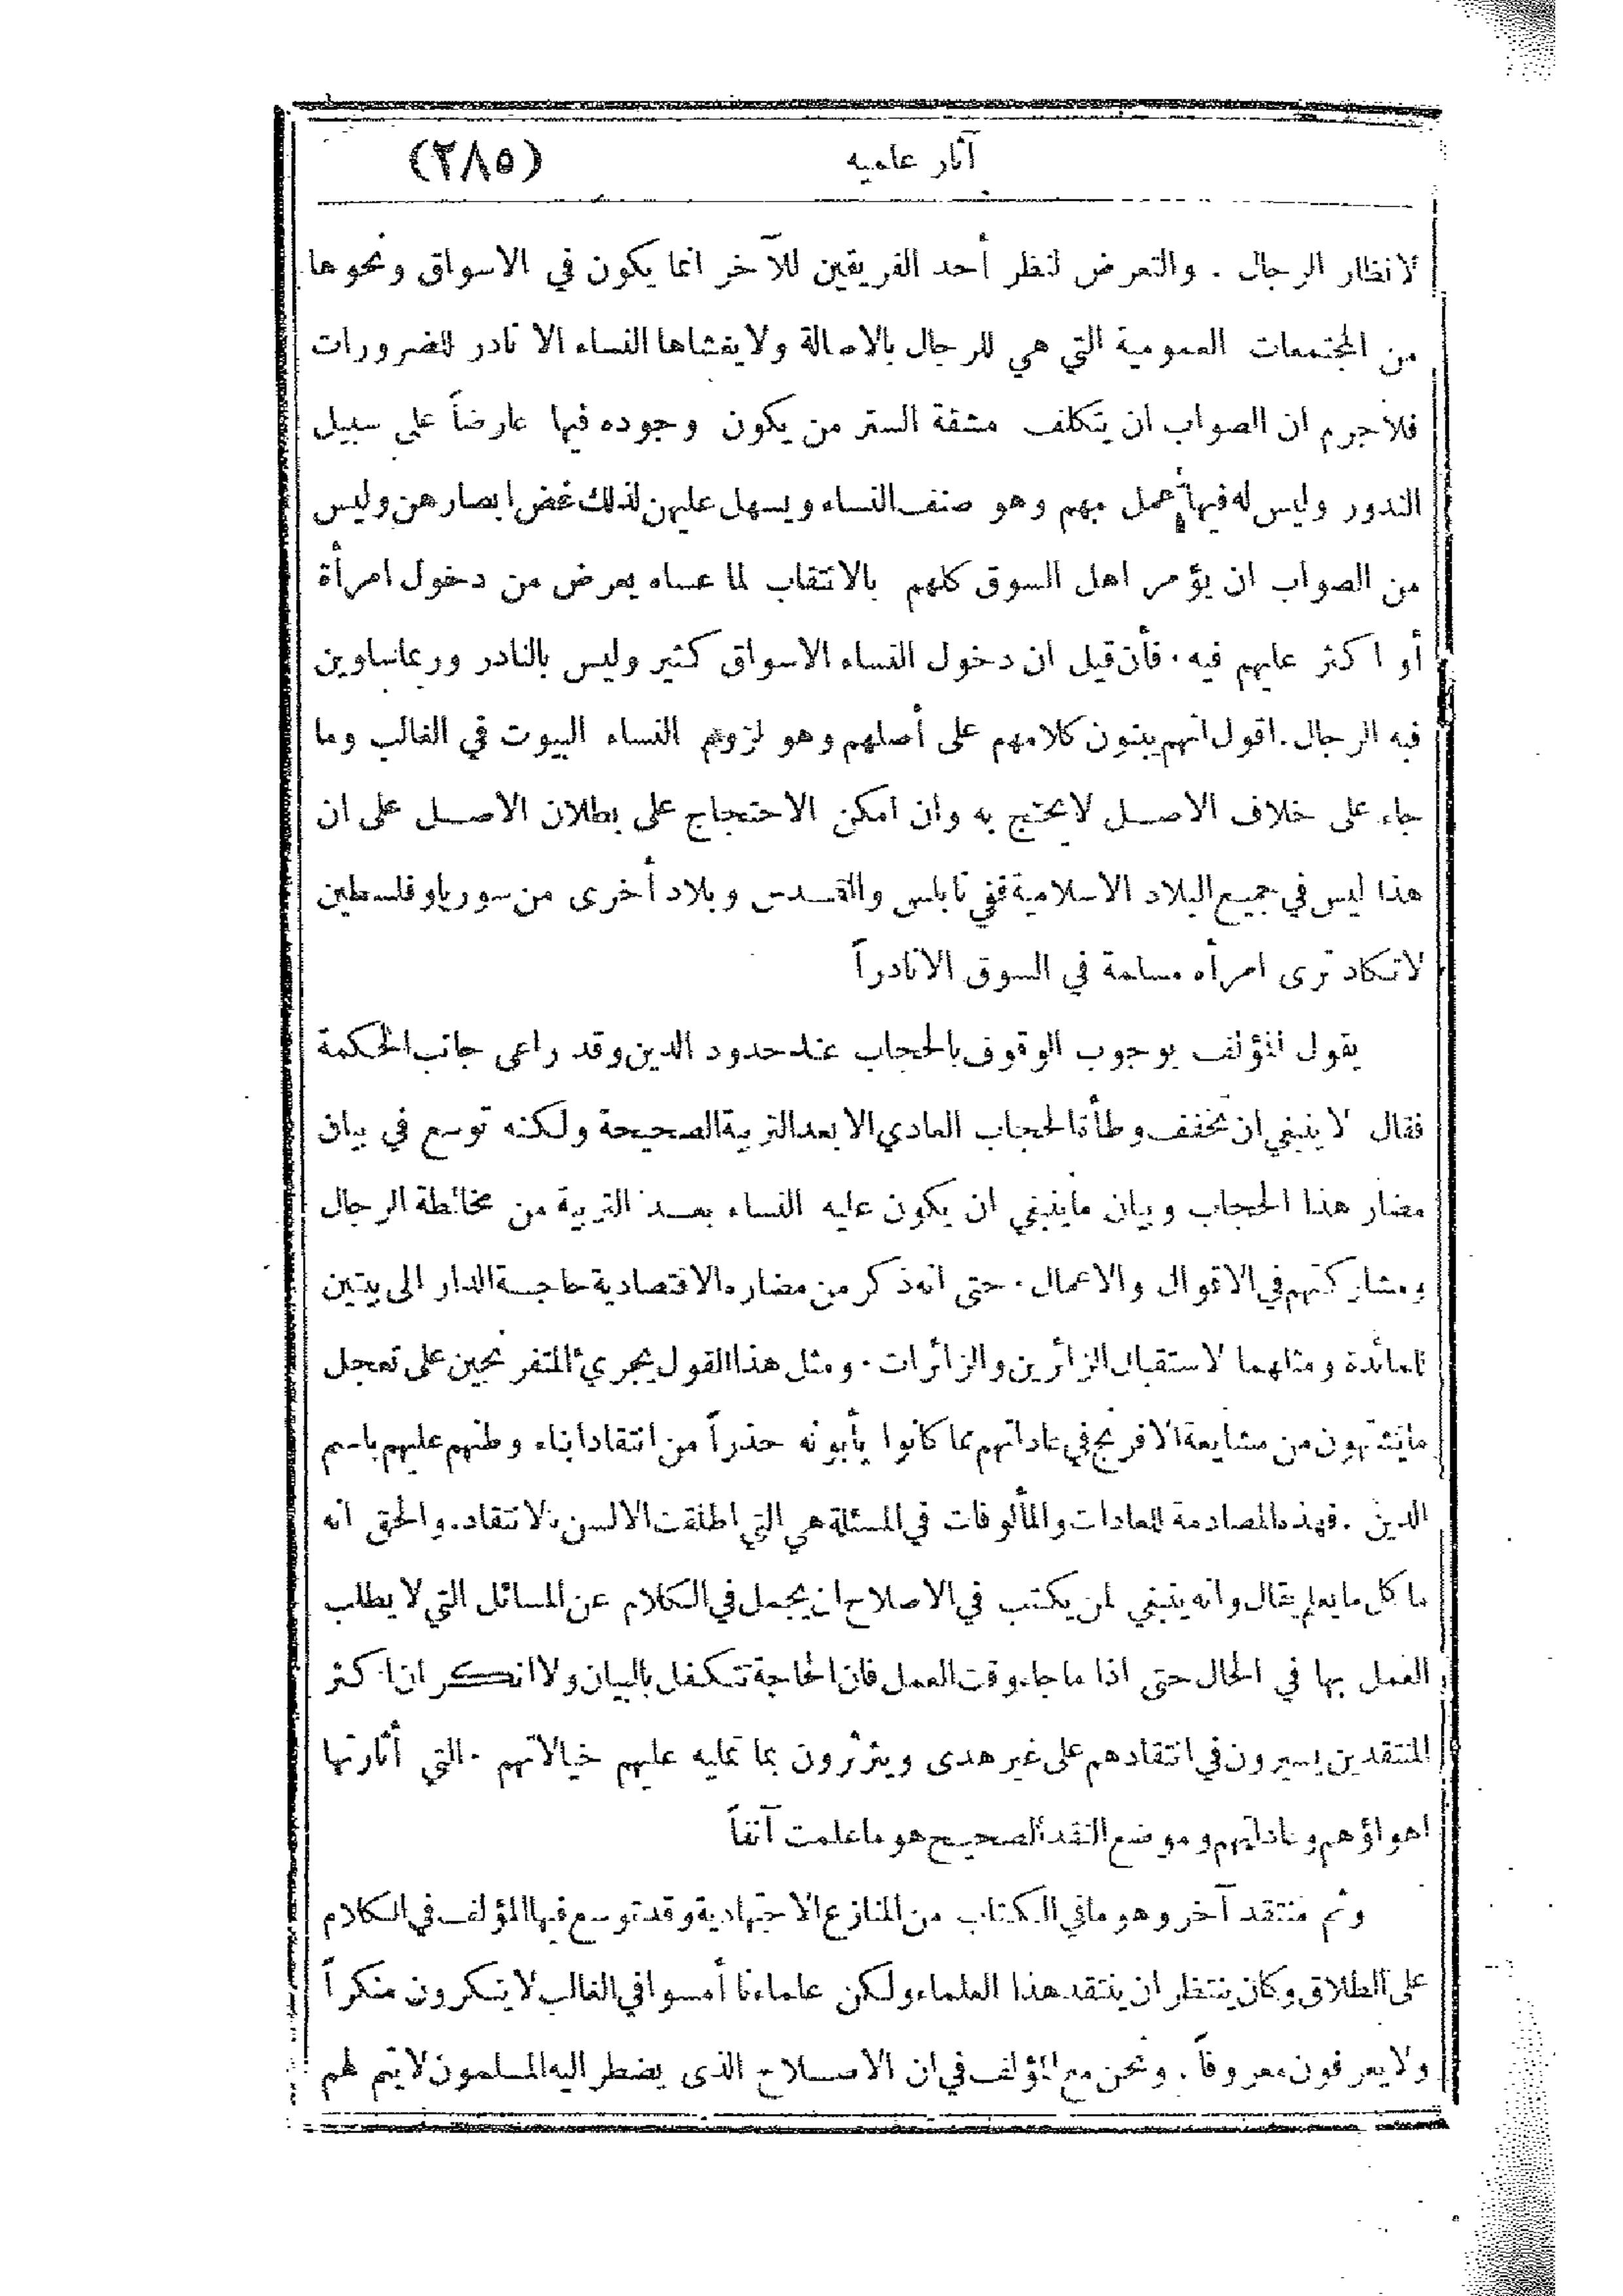 آثار علميه (٢٨٥)
لانظار الرجال . والتعرض لنظر أحد الفريقين للآخر انما يكون في الاسواق ونحوها
من المجتمعات العمومية التي هي للرجال بالاصالة ولا يغشاها النساء الا نادر للضرورات
فلا جرم ان الصواب ان يتكلف مشقة الستر من يكون وجوده فيها عارضاً على سبيل
الندور وليس له فيها عمل مهم وهو صنف النساء ويسهل عليهن لذلك غض ابصارهن وليس
من الصواب ان يؤمر اهل السوق كلهم بالانتقاب لما عساه يعرض من دخول امرأة
أو اكثر عليهم فيه . فأن قيل ان دخول النساء الاسواق كثير وليس بالنادر وربما يساوين
فيه الرجال . اقول انهم يبنون كلامهم على أصلهم وهو لزوم النساء البيوت في الغالب وما
جاء على خلاف الاصل لا يحتج به وان امكن الاحتجاج على بطلان الاصل على ان
هذا ليس في جميع البلاد الاسلامية ففي نابلس والقدس وبلاد أخرى من سوريا وفلسطين
لا تكاد ترى امرأه مسلمة في السوق الا نادراً
يقول المؤلف بوجوب الوقوف بالحجاب عند حدود الدين وقد راعى جانب الحكمة
فقال لا ينبغي ان تخفف وطأة الحجاب العادي الا بعد التربية الصحيحة ولكنه توسع في بيان
مضار هذا الحجاب وبيان ما ينبغي ان يكون عليه النساء بعد التربية من مخالطة الرجال
ومشاركتهم في الاقوال والاعمال . حتى انه ذكر من مضاره الاقتصادية حاجة الدار الى بيتين
للمائدة ومثلهما لاستقبال الزائرين والزائرات . ومثل هذا القول يجرئ المتفرنجين على تعجل
ما يشتهون من مشايعة الافرنج في عاداتهم مما كانوا يأبونه حذراً من انتقاد ابناء وطنهم عليهم باسم
الدين . فهذه المصادمة للعادات والمألوفات في المسئلة هي التي اطلقت الالسن بالانتقاد . والحق انه
ما كل ما يعلم يقال وانه ينبغي لمن يكتب في الاصلاح ان يجمل في الكلام عن المسائل التي لا يطلب
العمل بها في الحال حتى اذا ما جاء وقت العمل فان الحاجة تتكفل بالبيان ولا انكر ان اكثر
المنتقدين يسيرون في انتقادهم على غير هدى ويثرثرون بما تمليه عليهم خيالاتهم . التي أثارتها
اهواؤهم وعاداتهم وموضع النقد الصحيح هو ما علمت آنفاً
وثم منتقد آخر وهو ما في الكتاب من المنازع الاجتهادية وقد توسع فيها المؤلف في الكلام
على الطلاق وكان ينتظر ان ينتقد هذا العلماء ولكن علماءنا أمسوا في الغالب لا ينكرون منكراً
ولا يعرفون معروفاً . ونحن مع المؤلف في ان الاصلاح الذى يضطر اليه المسلمون لا يتم لهم